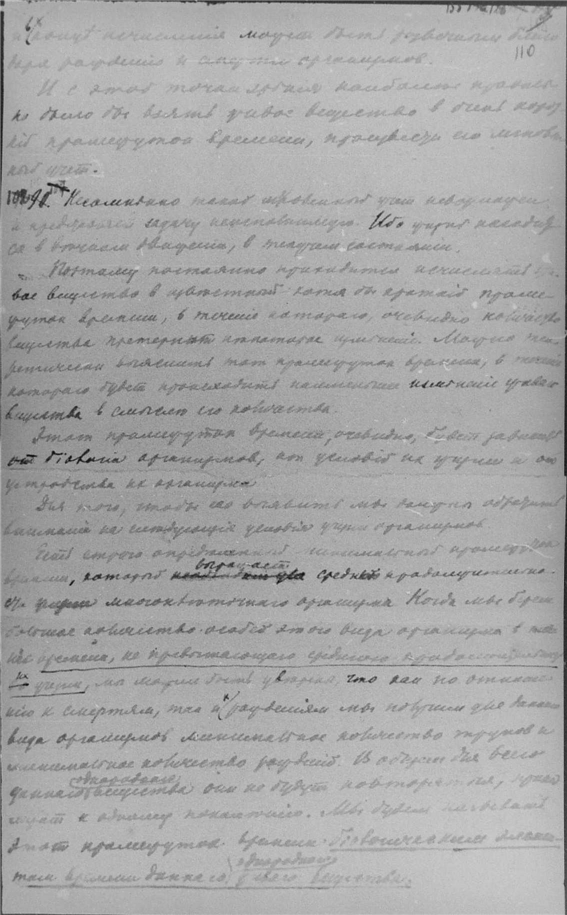 110
момент исчисления может быть
рождению и смерти организмов.
И с этой точки зрения наиболее правиль-
но было бы взять живое вещество в очень корот-
кий промежуток времени, произведя его мгновен-
ный учет.
90. Несомненно такой мгновенный учет
и представляет задачу неисполнимую. Ибо жизнь находит-
ся в вечном движении, в текучем состоянии.
Поэтому постоянно приходится исчислять жи-
вое вещество в известный хотя бы краткий проме-
жуток времени, в течение которого, очевидно количество
вещества претерпит некоторое изменение. Можно тео-
ретически выяснить тот промежуток времени, в течение
которого будет происходить наименьшее изменение живого
вещества в смысле его количества.
Этот промежуток времени, очевидно, будет зависеть
от биологии организмов, от условий их жизни и от
устройства их организма
Для того, чтобы его выявить мы должны обратить
внимание на следующие условия жизни организмов.
Есть строго определенный промежуток
времени, который выражает среднюю продолжительно-
сть жизни многоклеточного организма. Когда мы берем
большое количество особей этого вида организма в тече-
ние времени, не превышающего среднюю продолжительность
их жизни, мы можем быть уверены, что как по отноше-
нию к смертям, так и к рождениям мы получим для данного
вида организмов минимальное количество трупов и
минимальное количество рождений. В общем для всего
однородного
живого вещества они не будут повторяться,
к одному поколению. Мы будем называть
этот промежуток времени биологическим элемен-
однородного
том времени данного живого вещества.